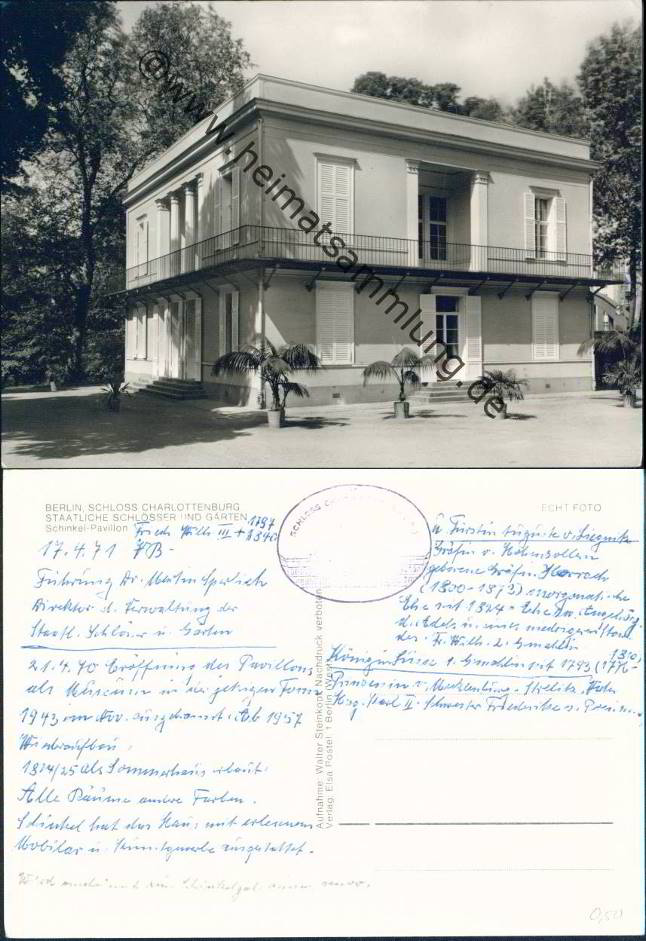 ©www.heimatsammlung.de
BERLIN, SCHLOSS CHARLOTTENBURG
STAATLICHE SCHLÖSSER UND GÄRTEN
Schinkel-Pavillon
Friedr. Wilh. III + 1797
1840
17.4.71 VB-
Führung Dr. Martin Sperlich
Direktor d. Verwaltung der
Staatl. Schlösser u. Gärten
21.4.70 Eröffnung des Pavillons
als Museum in der jetzigen Form
1943 im Nov. ausgebrannt. Ab 1957
Wiederaufbau.
1824/25 als Sommerhaus erbaut.
Alle Räume andre Farben.
Schinkel hat das Haus mit erlesenem
Mobilar u. Kunstgewerbe ausgestattet.
SCHLOSS CHARLOTTENBURG
ECHT FOTO
u. Fürstin Auguste v. Liegnitz
Gräfin v. Hohenzollern
geborene Gräfin Harrach
(1800-1873) morganatische
Ehe seit 1824 - Ehe zw. Angehörig.
d. Adels m. einem niedrigeren Stand
des Fr. Wilh. 2. Gemahlin
Königin Luise 1. Gemahlin seit 1793 (1776-
1810)
Prinzessin v. Mecklenburg-Strelitz, Vater
Hzg. Karl II. Schwester Friederike v. Preussen
Aufnahme: Walter Steinkopf Nachdruck verboten
Verlag: Elsa Postel 1 Berlin (West)
0,50